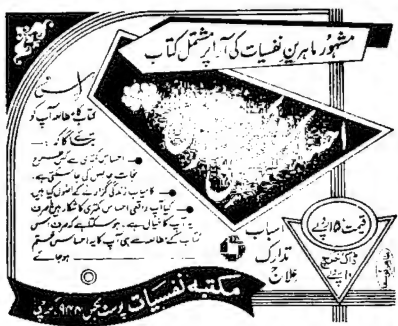 مشہور ماہرینِ نفسیات کی آراء پر مشتمل کتاب
احساسِ کمتری
اس
کتاب کا مطالعہ آپ کو
بتائے گا کہ :
احساسِ کمتری سے کس طرح
نجات حاصل کی جا سکتی ہے
کامیاب زندگی گزارنے کے اصول کیا ہیں
کیا آپ واقعی احساسِ کمتری کا شکار ہیں یا صرف
یہ آپ کا خیال ہے، ہو سکتا ہے کہ صرف اس
کتاب کے مطالعہ سے ہی آپ کا یہ احساس ختم
ہو جائے
اسباب
تدارک
علاج
قیمت ۱۵ روپے
ڈاک خرچ
۱۰ روپے
مکتبہ نفسیات پوسٹ بکس ۹۴۴ کراچی